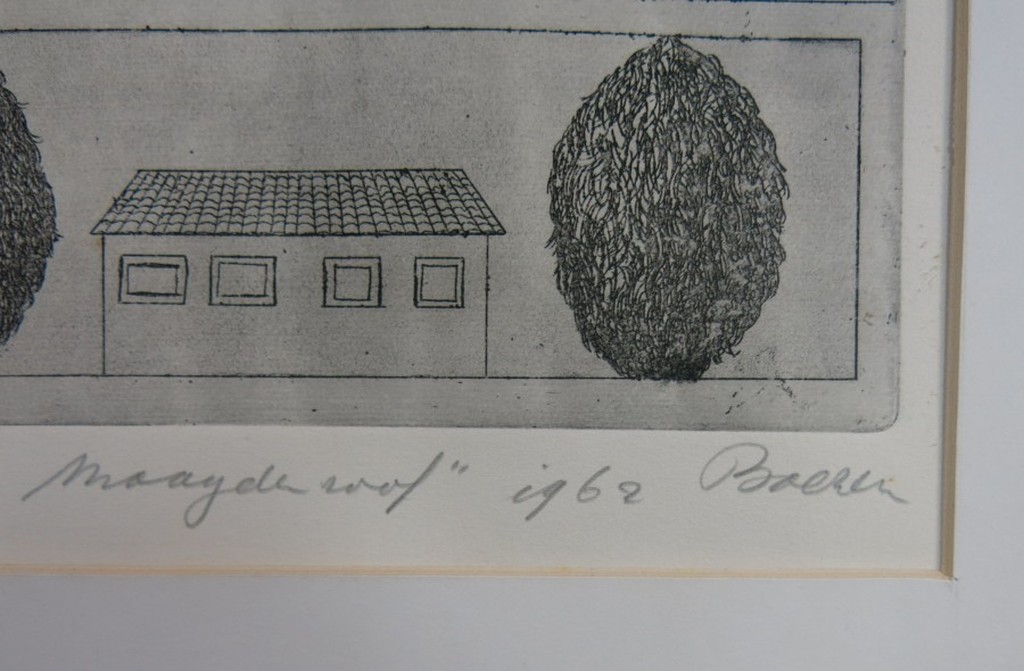 Maagdenroof" 1962 Boezem